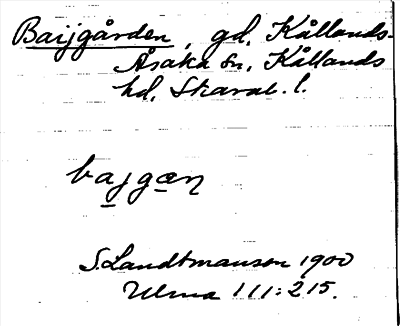 Baijgården, gd, Kållands-
Åsaka sn, Kållands
hd, Skarab. l.
bajgæn
S. Landtmanson 1900
Ulma 111:215.